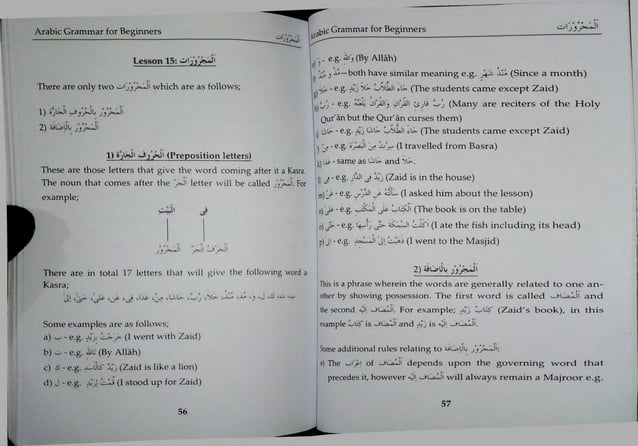 Arabic Grammar for Beginners
اَلْمَجْرُوْرَات
Lesson 15: اَلْمَجْرُوْرَات
There are only two اَلْمَجْرُوْرَات which are as follows;
1) اَلْمَجْرُوْرُ بِالْحُرُوْفِ الْجَارَّةِ
2) اَلْمَجْرُوْرُ بِالْاِضَافَةِ
1) اَلْحُرُوْفُ الْجَارَّةُ (Preposition letters)
These are those letters that give the word coming after it a Kasra.
The noun that comes after the اَلْجَرّ letter will be called اَلْمَجْرُوْر. For
example;
فِى الْبَيْتِ
حَرْفُ الْجَرِّ اَلْمَجْرُوْر
There are in total 17 letters that will give the following word a
Kasra;
ب، ت، ك، ل، و، مُنْذُ، مُذْ، خَلَا، رُبَّ، حَاشَا، مِنْ، عَدَا، فِى، عَنْ، عَلٰى، حَتّٰى، اِلٰى
Some examples are as follows;
a) ب - e.g. خَرَجْتُ بِزَيْدٍ (I went with Zaid)
b) ت - e.g. تَاللّٰهِ (By Allāh)
c) ك - e.g. زَيْدٌ كَالْاَسَدِ (Zaid is like a lion)
d) ل - e.g. قُمْتُ لِزَيْدٍ (I stood up for Zaid)
56
Arabic Grammar for Beginners
اَلْمَجْرُوْرَات
e) و - e.g. وَاللّٰهِ (By Allāh)
f) مُذْ و مُنْذُ – both have similar meaning e.g. مُنْذُ شَهْرٍ (Since a month)
g) خَلَا - e.g. جَاءَ الطُّلَّابُ خَلَا زَيْدٍ (The students came except Zaid)
h) رُبَّ - e.g. رُبَّ قَارِئِ الْقُرْآنِ وَالْقُرْآنُ يَلْعَنُهُ (Many are reciters of the Holy
Qur'ān but the Qur'ān curses them)
i) حَاشَا - e.g. جَاءَ الطُّلَّابُ حَاشَا زَيْدٍ (The students came except Zaid)
j) مِنْ - e.g. سِرْتُ مِنَ الْبَصْرَةِ (I travelled from Basra)
k) عَدَا - same as حَاشَا and خَلَا.
l) فِى - e.g. زَيْدٌ فِى الدَّارِ (Zaid is in the house)
m) عَنْ - e.g. سَأَلْتُهُ عَنِ الدَّرْسِ (I asked him about the lesson)
n) عَلٰى - e.g. اَلْكِتَابُ عَلَى الْمَكْتَبِ (The book is on the table)
o) حَتّٰى - e.g. اَكَلْتُ السَّمَكَةَ حَتّٰى رَأْسِهَا (I ate the fish including its head)
p) اِلٰى - e.g. ذَهَبْتُ اِلَى الْمَسْجِدِ (I went to the Masjid)
2) اَلْمَجْرُوْرُ بِالْاِضَافَةِ
This is a phrase wherein the words are generally related to one an-
other by showing possession. The first word is called اَلْمُضَاف and
the second اَلْمُضَاف اِلَيْهِ. For example; كِتَابُ زَيْدٍ (Zaid's book), in this
example كِتَابُ is اَلْمُضَاف and زَيْدٍ is اَلْمُضَاف اِلَيْهِ.
Some additional rules relating to اَلْمَجْرُوْرُ بِالْاِضَافَةِ:
a) The اِعْرَاب of اَلْمُضَاف depends upon the governing word that
precedes it, however اَلْمُضَاف اِلَيْهِ will always remain a Majroor e.g.
57